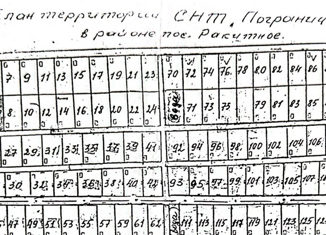 План территории СНТ. Погранич
в районе пос. Ракитное.
7 9 11 13 15 17 19 21 23 70 72 74 76 78 80 82 84 86
8 10 12 14 16 18 20 22 24 71 73 75 79 81 83 85
27 29 31 33 35 37 39 41 92 94 96 98 100 102 104 106
30 32 34 36 38 40 42 93 95 97 99 101 103 105 107
47 49 51 53 55 57 59 61 63 111 113 115 117 119 121 123 125